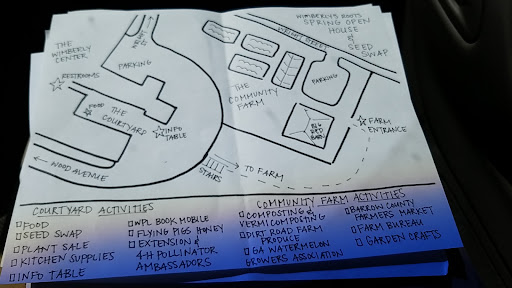 WIMBERLY'S ROOTS
SPRING OPEN
HOUSE
&
SEED
SWAP
WRIGHT STREET
WRIGHT ST
THE
WIMBERLY
CENTER
PARKING
RESTROOMS
PARKING
THE
COMMUNITY
FARM
FOOD
THE
COURTYARD
INFO
TABLE
BIG
RED
BARN
FARM
ENTRANCE
← WOOD AVENUE
STAIRS
TO FARM
COURTYARD ACTIVITIES
FOOD
SEED SWAP
PLANT SALE
KITCHEN SUPPLIES
INFO TABLE
WPL BOOK MOBILE
FLYING PIGS HONEY
EXTENSION &
4-H POLLINATOR
AMBASSADORS
COMMUNITY FARM ACTIVITIES
COMPOSTING &
VERMICOMPOSTING
DIRT ROAD FARM
PRODUCE
GA WATERMELON
GROWERS ASSOCIATION
BARROW COUNTY
FARMERS MARKET
FARM BUREAU
GARDEN CRAFTS